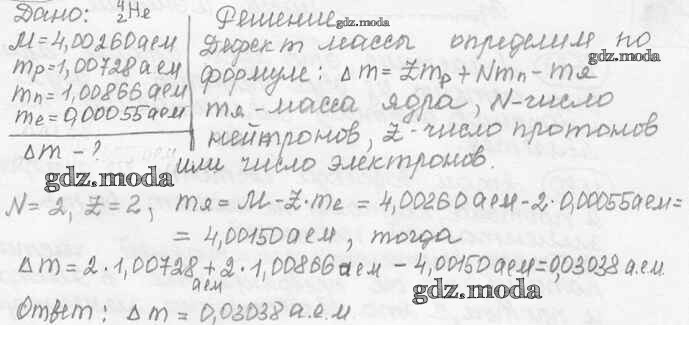 Дано: ⁴₂He
M = 4,00260 аем
mp = 1,00728 аем
mn = 1,00866 аем
me = 0,00055 аем
Δm - ?
gdz.moda
Решение
gdz.moda
Дефект массы определим по
gdz.moda
формуле: Δm = Zmp + Nmn - mя
mя - масса ядра, N - число
нейтронов, Z - число протонов
или число электронов.
N = 2, Z = 2; mя = M - Z · me = 4,00260 аем - 2 · 0,00055 аем =
= 4,00150 аем, тогда
Δm = 2 · 1,00728 аем + 2 · 1,00866 аем - 4,00150 аем = 0,03038 а.е.м.
gdz.moda
Ответ: Δm = 0,03038 а.е.м.